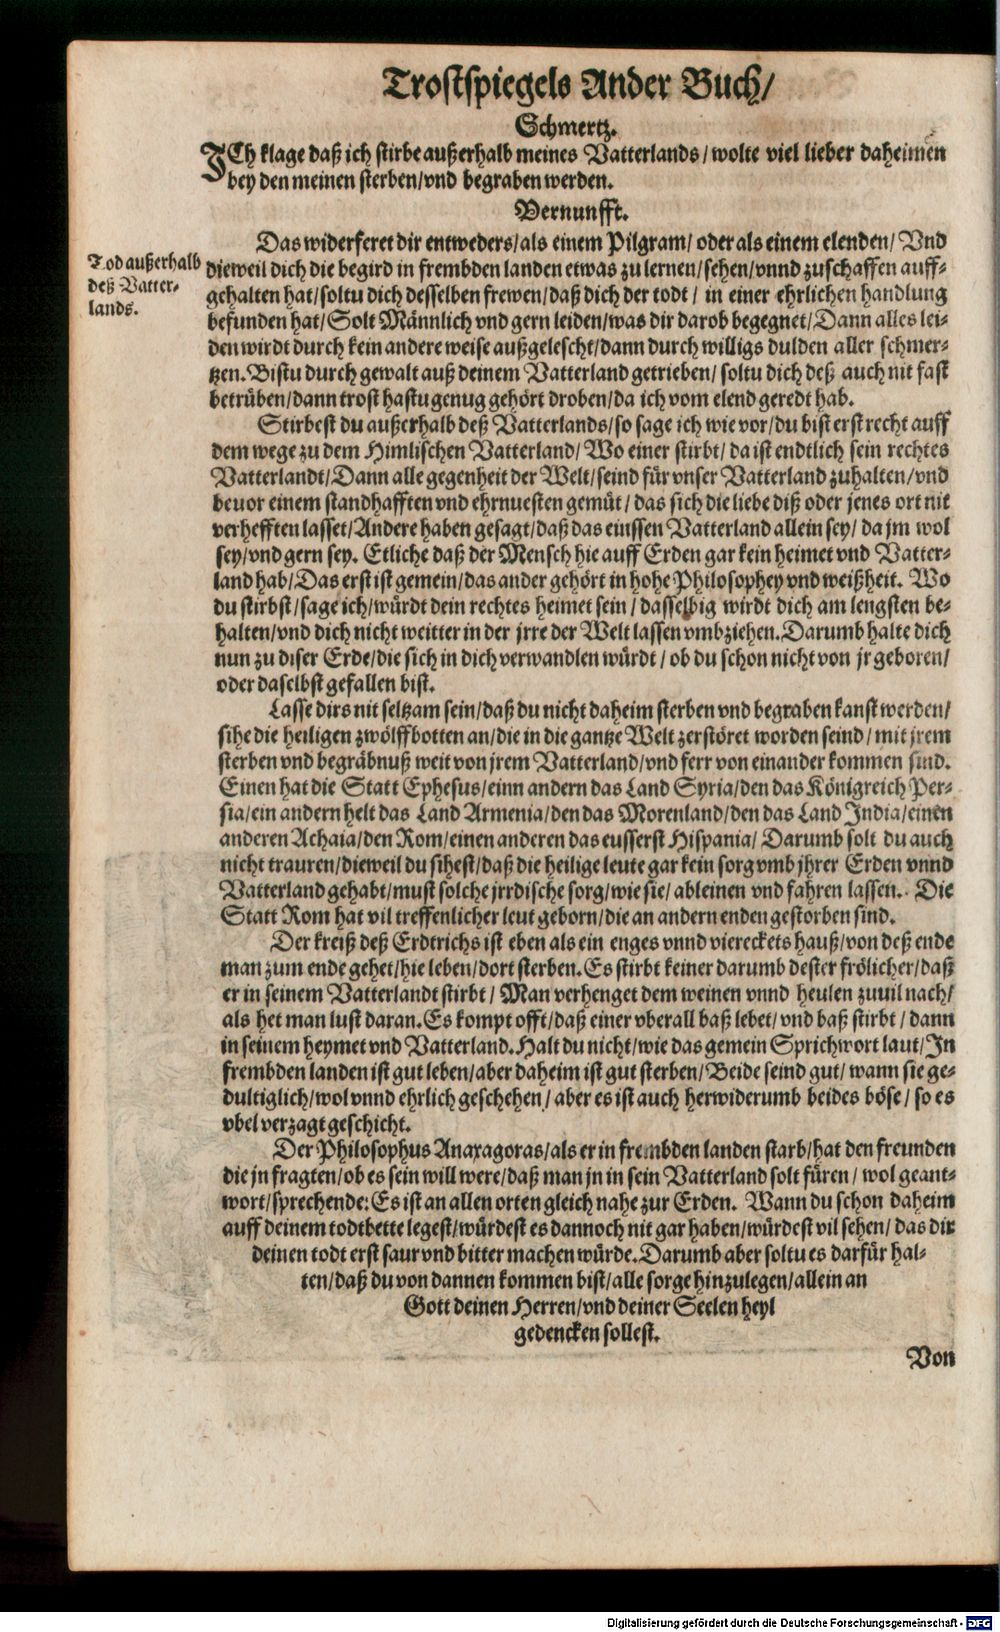 Trostspiegels Ander Buch/
Schmertz.
ICh klage daß ich stirbe außerhalb meines Vatterlands/wolte viel lieber daheimen
bey den meinen sterben/vnd begraben werden.
Vernunfft.
Das widerferet dir entweders/als einem Pilgram/oder als einem elenden/Vnd
Tod außerhalb
deß Vatter-
lands.
dieweil dich die begird in frembden landen etwas zu lernen/sehen/vnnd zuschaffen auff-
gehalten hat/soltu dich desselben frewen/daß dich der todt/in einer ehrlichen handlung
befunden hat/Solt Männlich vnd gern leiden/was dir darob begegnet/Dann alles lei-
den wirdt durch kein andere weise außgelescht/dann durch willigs dulden aller schmer-
tzen. Bistu durch gewalt auß deinem Vatterland getrieben/soltu dich deß auch nit fast
betrüben/dann trost hastu genug gehört droben/da ich vom elend geredt hab.
Stirbest du außerhalb deß Vatterlands/so sage ich wie vor/du bist erst recht auff
dem wege zu dem Himlischen Vatterland/Wo einer stirbt/da ist endtlich sein rechtes
Vatterlandt/Dann alle gegenheit der Welt/seind für vnser Vatterland zuhalten/vnd
beuor einem standhafften vnd ehrnuesten gemüt/das sich die liebe diß oder jenes ort nit
verhefften lasset/Andere haben gesagt/daß das einssen Vatterland allein sey/da jm wol
sey/vnd gern sey. Etliche daß der Mensch hie auff Erden gar kein heimet vnd Vatter-
land hab/Das erst ist gemein/das ander gehört in hohe Philosophey vnd weißheit. Wo
du stirbst/sage ich/würdt dein rechtes heimet sein/dasselbig wirdt dich am lengsten be-
halten/vnd dich nicht weitter in der jrre der Welt lassen vmbziehen. Darumb halte dich
nun zu diser Erde/die sich in dich verwandlen würdt/ob du schon nicht von jr geboren/
oder daselbst gefallen bist.
Lasse dirs nit seltzam sein/daß du nicht daheim sterben vnd begraben kanst werden/
sihe die heiligen zwölffbotten an/die in die gantze Welt zerstöret worden seind/mit jrem
sterben vnd begräbnuß weit von jrem Vatterland/vnd ferr von einander kommen sind.
Einen hat die Statt Ephesus/einn andern das Land Syria/den das Königreich Per-
sia/ein andern helt das Land Armenia/den das Morenland/den das Land India/einen
anderen Achaia/den Rom/einen anderen das eusserst Hispania/Darumb solt du auch
nicht trauren/dieweil du sihest/daß die heilige leute gar kein sorg vmb jhrer Erden vnnd
Vatterland gehabt/must solche jrrdische sorg/wie sie/ableinen vnd fahren lassen. Die
Statt Rom hat vil treffenlicher leut geborn/die an andern enden gestorben sind.
Der kreiß deß Erdtrichs ist eben als ein enges vnnd viereckets hauß/von deß ende
man zum ende gehet/hie leben/dort sterben. Es stirbt keiner darumb dester frölicher/daß
er in seinem Vatterlandt stirbt/Man verhenget dem weinen vnnd heulen zuuil nach/
als het man lust daran. Es kompt offt/daß einer vberall baß lebet/vnd baß stirbt/dann
in seinem heymet vnd Vatterland. Halt du nicht/wie das gemein Sprichwort laut/In
frembden landen ist gut leben/aber daheim ist gut sterben/Beide seind gut/wann sie ge-
dultiglich/wol vnnd ehrlich geschehen/aber es ist auch herwiderumb beides böse/so es
vbel verzagt geschicht.
Der Philosophus Anaxagoras/als er in frembden landen starb/hat den freunden
die jn fragten/ob es sein will were/daß man jn in sein Vatterland solt füren/wol geant-
wort/sprechende: Es ist an allen orten gleich nahe zur Erden. Wann du schon daheim
auff deinem todtbette legest/würdest es dannoch nit gar haben/würdest vil sehen/das dir
deinen todt erst saur vnd bitter machen würde. Darumb aber soltu es darfür hal-
ten/daß du von dannen kommen bist/alle sorge hinzulegen/allein an
Gott deinen Herren/vnd deiner Seelen heyl
gedencken sollest.
Von
Digitalisierung gefördert durch die Deutsche Forschungsgemeinschaft - DFG